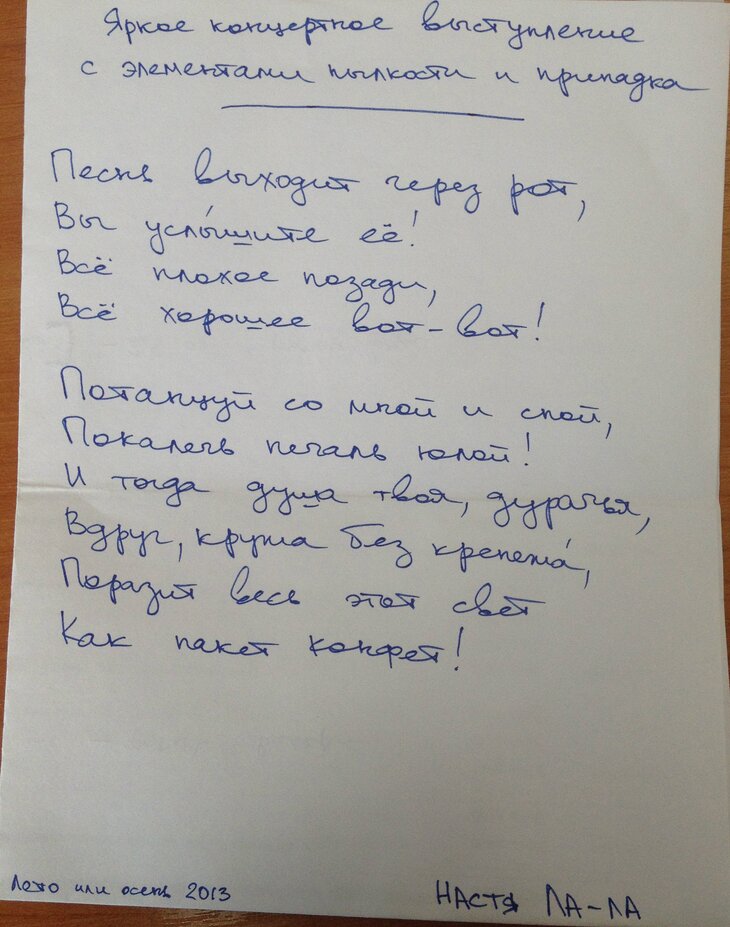 Яркое концертное выступление
с элементами пылкости и припадка
Песнь выходит через рот,
Вы услы́шите её!
Всё плохое позади,
Всё хорошее вот-вот!
Потанцуй со мной и спой,
Покалечь печаль юлой!
И тогда душа твоя, дурачья,
Вдруг, кружа без крепежа́,
Поразит весь этот свет
Как пакет конфет!
Лето или осень 2013
НАСТЯ ЛА-ЛА